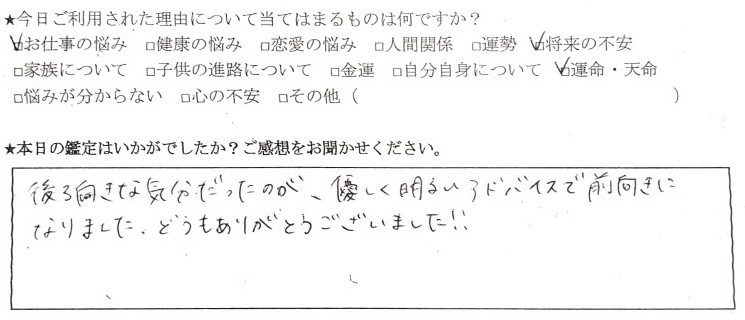 ★今日ご利用された理由について当てはまるものは何ですか？
☑お仕事の悩み □健康の悩み □恋愛の悩み □人間関係 □運勢 ☑将来の不安
□家族について □子供の進路について □金運 □自分自身について ☑運命・天命
□悩みが分からない □心の不安 □その他（ ）
★本日の鑑定はいかがでしたか？ご感想をお聞かせください。
後ろ向きな気分だったのが、優しく明るいアドバイスで前向きに
なりました。どうもありがとうございました!!